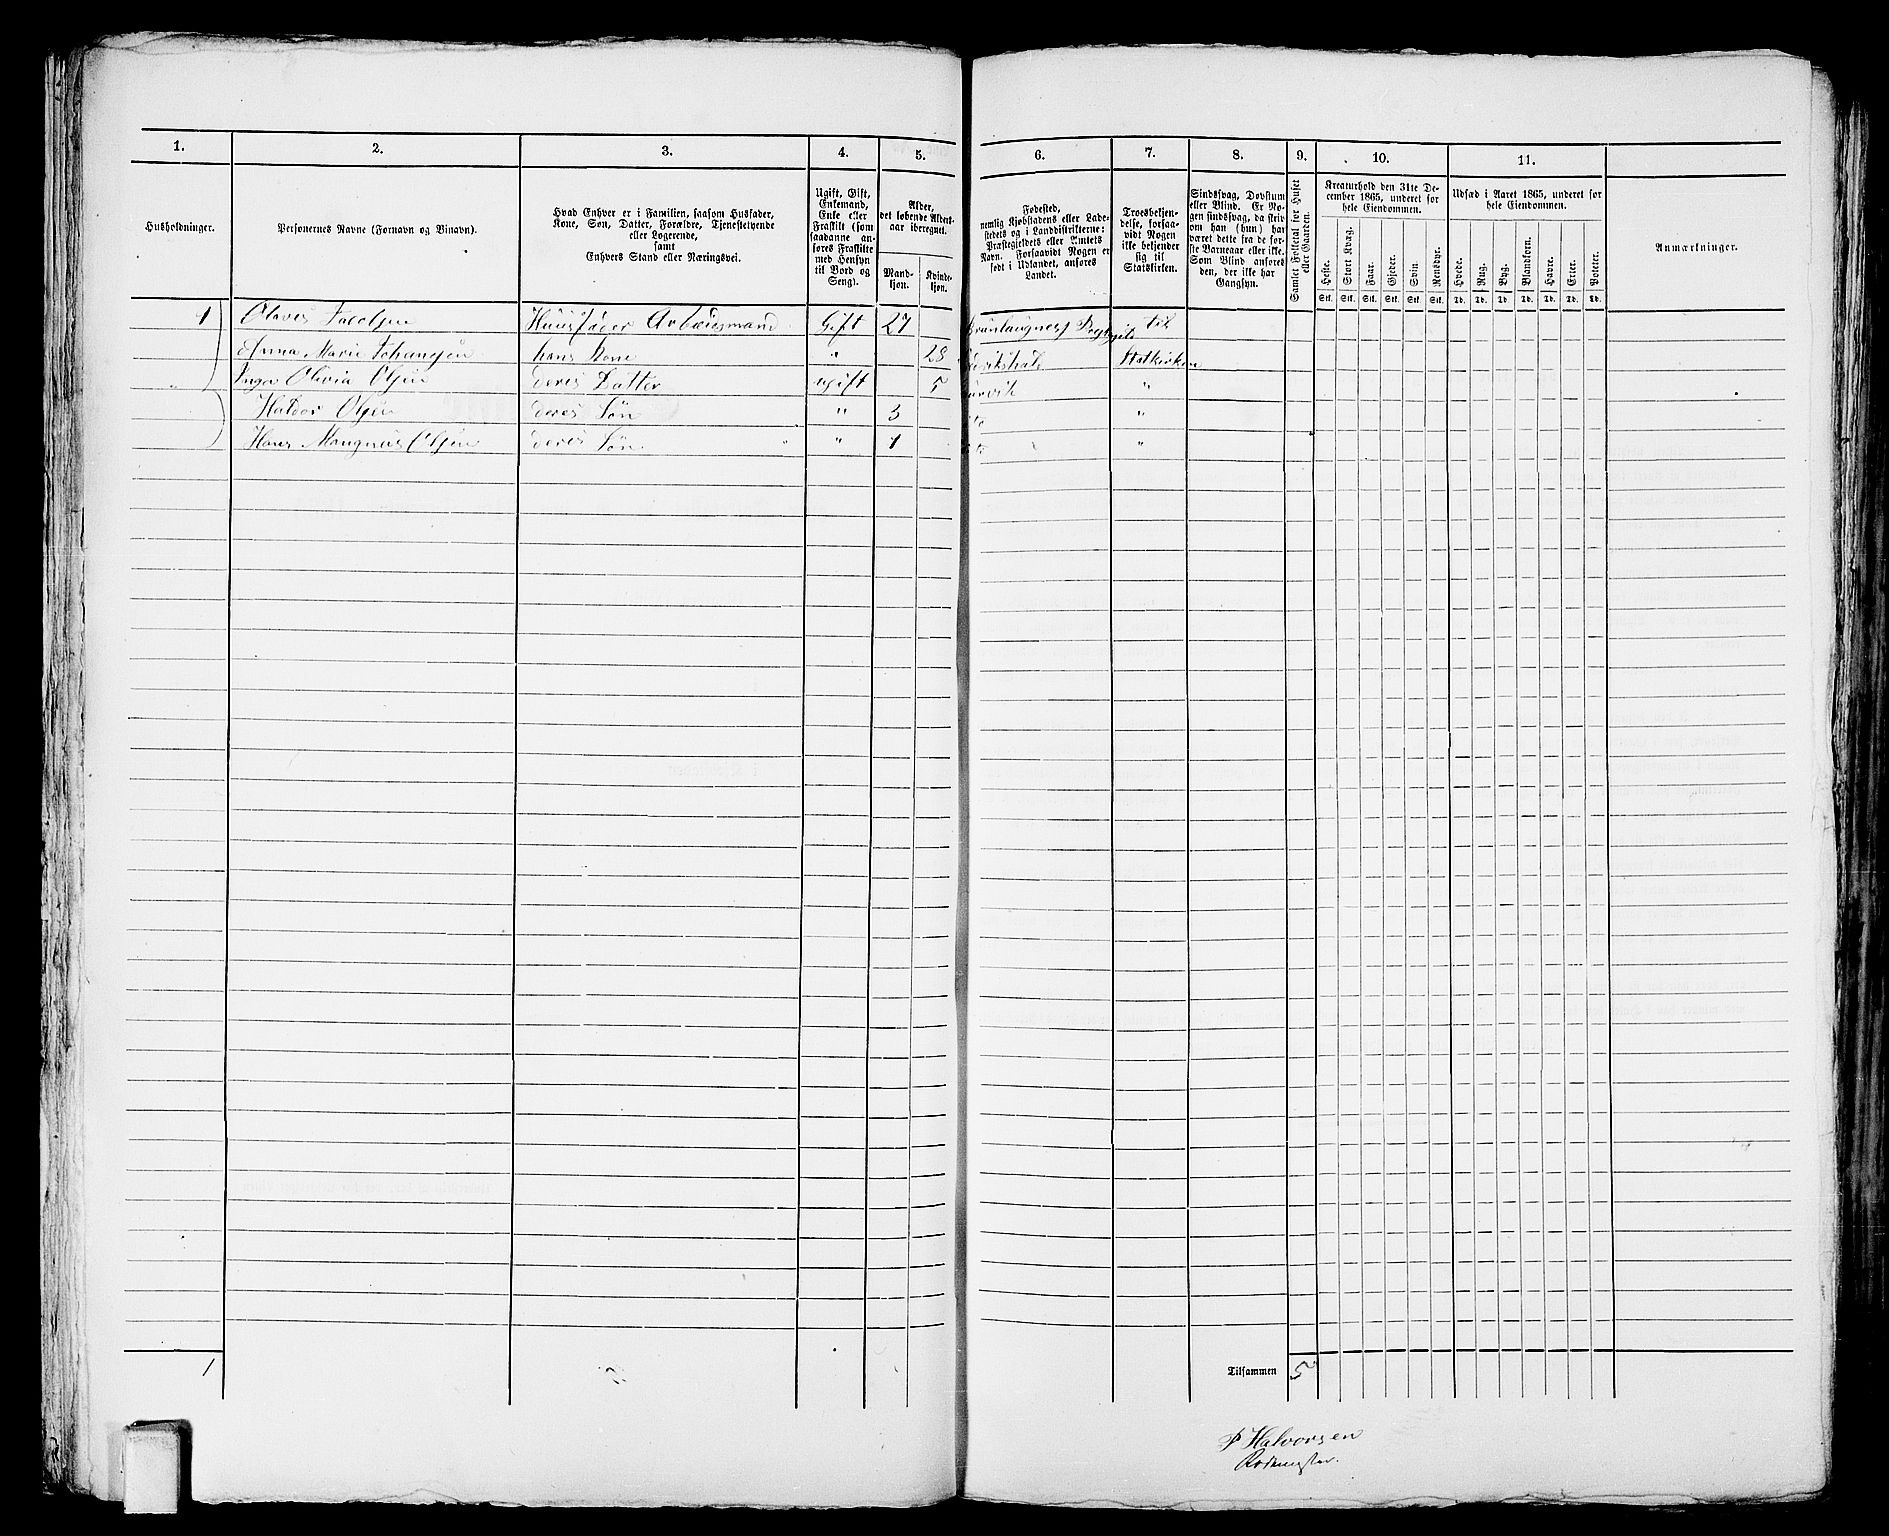 1.
2.
3.
4.
5.
6.
7.
8.
9.
10.
11.
Husholdninger.
Personernes Navne (Fornavn og Binavn).
Hvad Enhver er i Familien, saasom Husfader,
Kone, Søn, Datter, Forældre, Tjenestetyende
eller Logerende,
samt
Enhvers Stand eller Næringsvei.
Ugift, Gift,
Enkemand,
Enke eller
Fraskilt (som
saadanne an-
føres Fraskilte
med Hensyn
til Bord og
Seng).
Alder,
det løbende Alders-
aar iberegnet.
Mand-
kjøn.
Kvinde-
kjøn.
Fødested,
nemlig Kjøbstadens eller Lade-
stedets og i Landdistrikterne:
Præstegjeldets eller Amtets
Navn. Forsaavidt Nogen er
født i Udlandet, anføres
Landet.
Troesbekjen-
delse, forsaa-
vidt Nogen
ikke bekjender
sig til
Statskirken.
Sindssvag, Døvstum
eller Blind. Er No-
gen sindssvag, da skriv
om han (hun) har
været dette fra de før-
ste Barneaar eller ikke.
Som Blind anføres
den, der ikke har
Gangsyn.
Samlet Folketal for Huset
eller Gaarden.
Kreaturhold den 31te De-
cember 1865, underet for
hele Eiendommen.
Heste.
Stort Kvæg.
Faar.
Gjeder.
Svin.
Rensdyr.
Stk. Stk. Stk. Stk. Stk. Stk.
Udsæd i Aaret 1865, underet for
hele Eiendommen.
Hvede.
Rug.
Byg.
Blandkorn.
Havre.
Erter.
Poteter.
Td. Td. Td. Td. Td. Td. Td.
Anmærkninger.
1 Olaves Jacobsen Huusfader Arbeidsmand Gift 27 til
Anna Marie Johansen hans Kone " 28 Statkirken
Inga Olivia Olsen deres Datter ugift 5 "
Haldor Olsen deres Søn " 3 "
Hans Mangnus Olsen deres Søn " 1 "
1 Tilsammen 5
P Halvorsen
Rodemester.